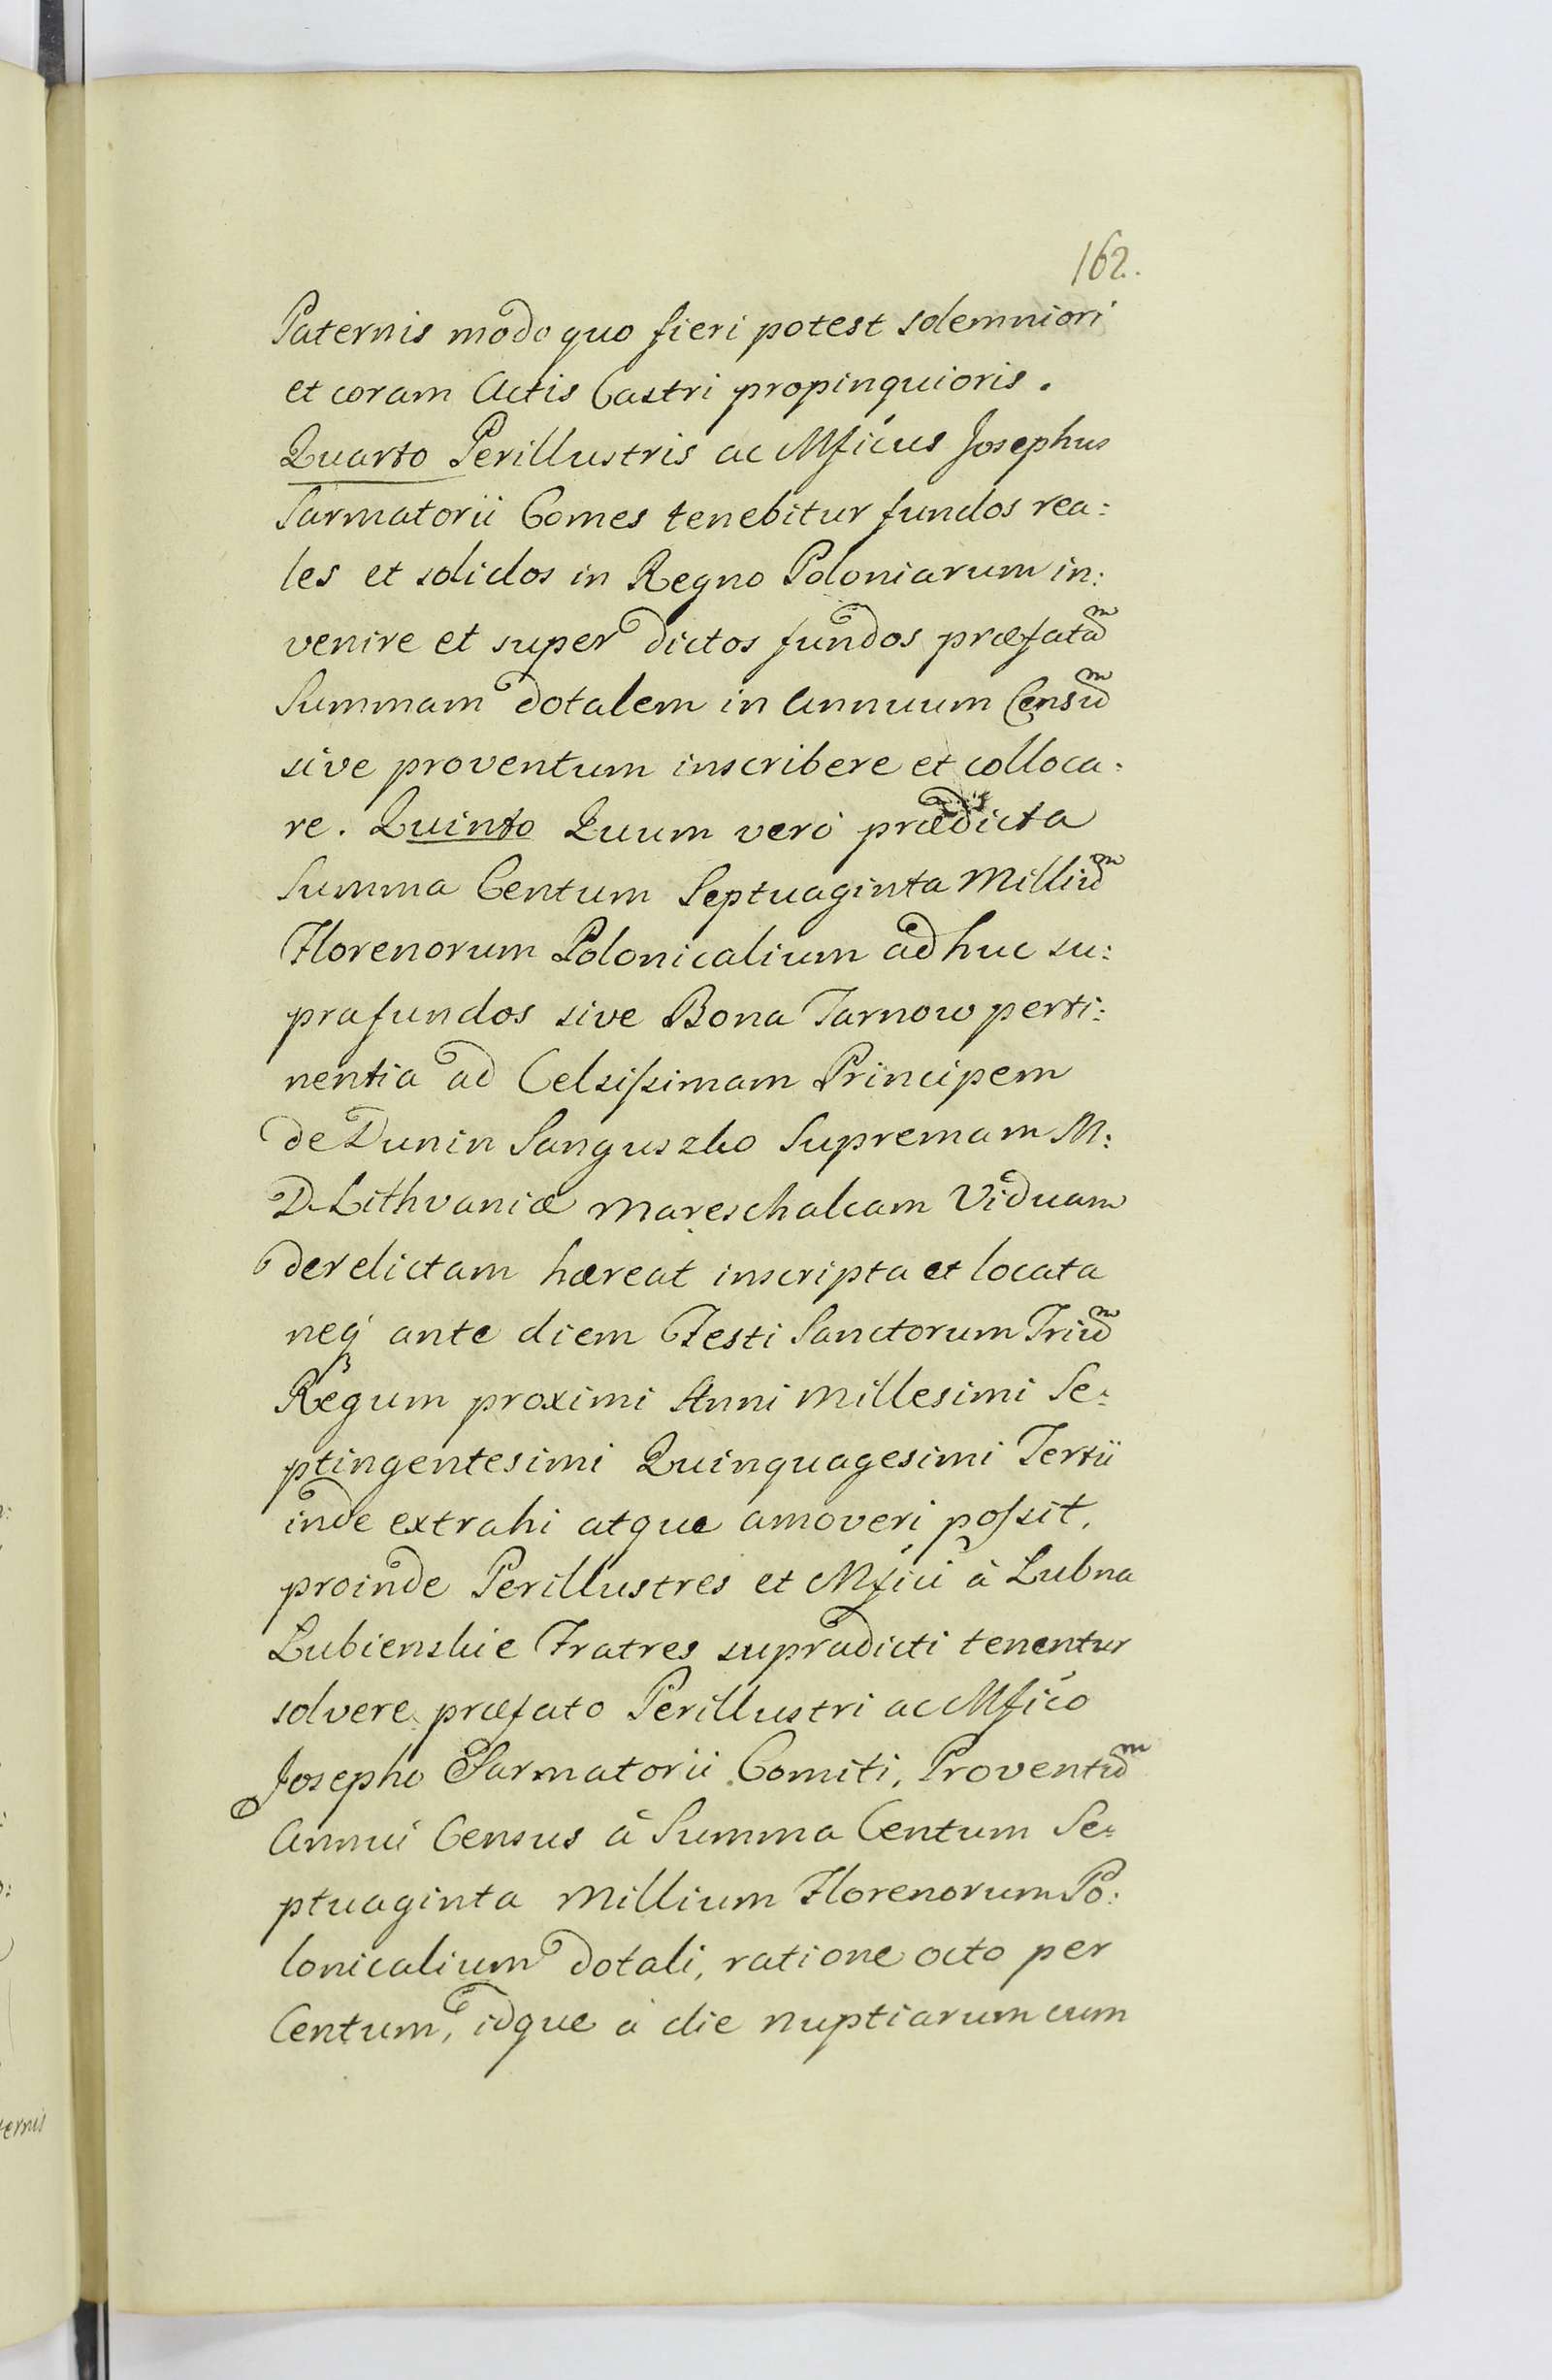 162.
Paternis modo quo fieri potest solemniori
et coram Actis Castri propinquioris.
Quarto Perillustris ac Mficus Josephus
Sarmatorii Comes tenebitur fundos rea:
les et solidos in Regno Poloniarum in:
venire et super dictos fundos præfatam
Summam dotalem in annuum Censum
sive proventum inscribere et colloca:
re. Quinto Quum vero prædicta
Summa Centum Septuaginta Millium
Florenorum Polonicalium adhuc su:
prafundos sive Bona Tarnow perti:
nentia ad Celsissimam Principem
de Dunin Sanguszko Supremam M:
D. Lithvaniæ Mareschalcam Viduam
derelictam hæreat inscripta et locata
neq ante diem Festi Sanctorum Trium
Regum proximi Anni Millesimi Se:
ptingentesimi Quinquagesimi Tertii
inde extrahi atque amoveri possit,
proinde Perillustres et Mfici à Lubna
Lubienskie Fratres supradicti tenentur
solvere præfato Perillustri ac Mfico
Josepho Sarmatorii Comiti, Proventum
Annui Census à Summa Centum Se:
ptuaginta Millium Florenorum Po:
lonicalium dotali, ratione octo per
Centum, idque à die nuptiarum cum